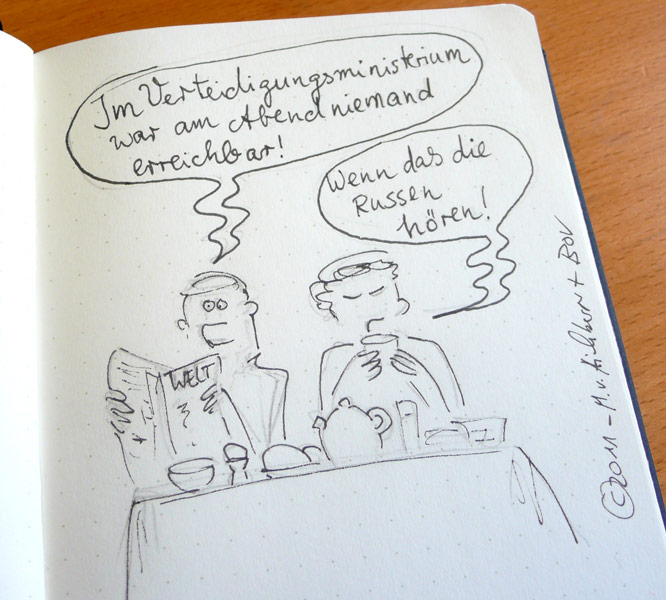 Im Verteidigungsministerium
war am Abend niemand
erreichbar!
Wenn das die
Russen
hören!
WELT
©2011 - M.v. + Bov